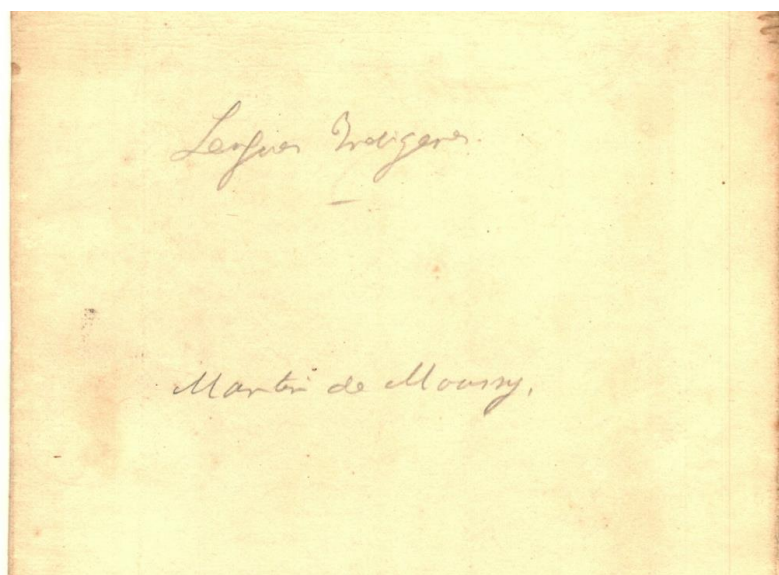 Lenguas Indigenas.
Martin de Moussy.